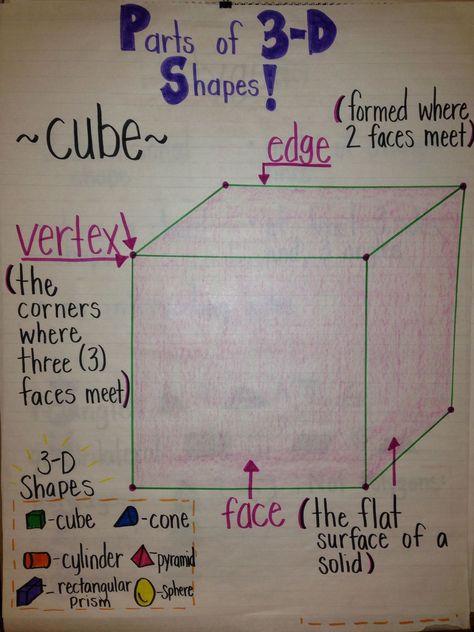 Parts of 3-D
Shapes!
~cube~
edge
(formed where
2 faces meet)
vertex
(the
corners
where
three (3)
faces meet)
face
(the flat
surface of a
solid)
3-D
Shapes
-cube
-cone
-cylinder
-pyramid
-rectangular
prism
-sphere